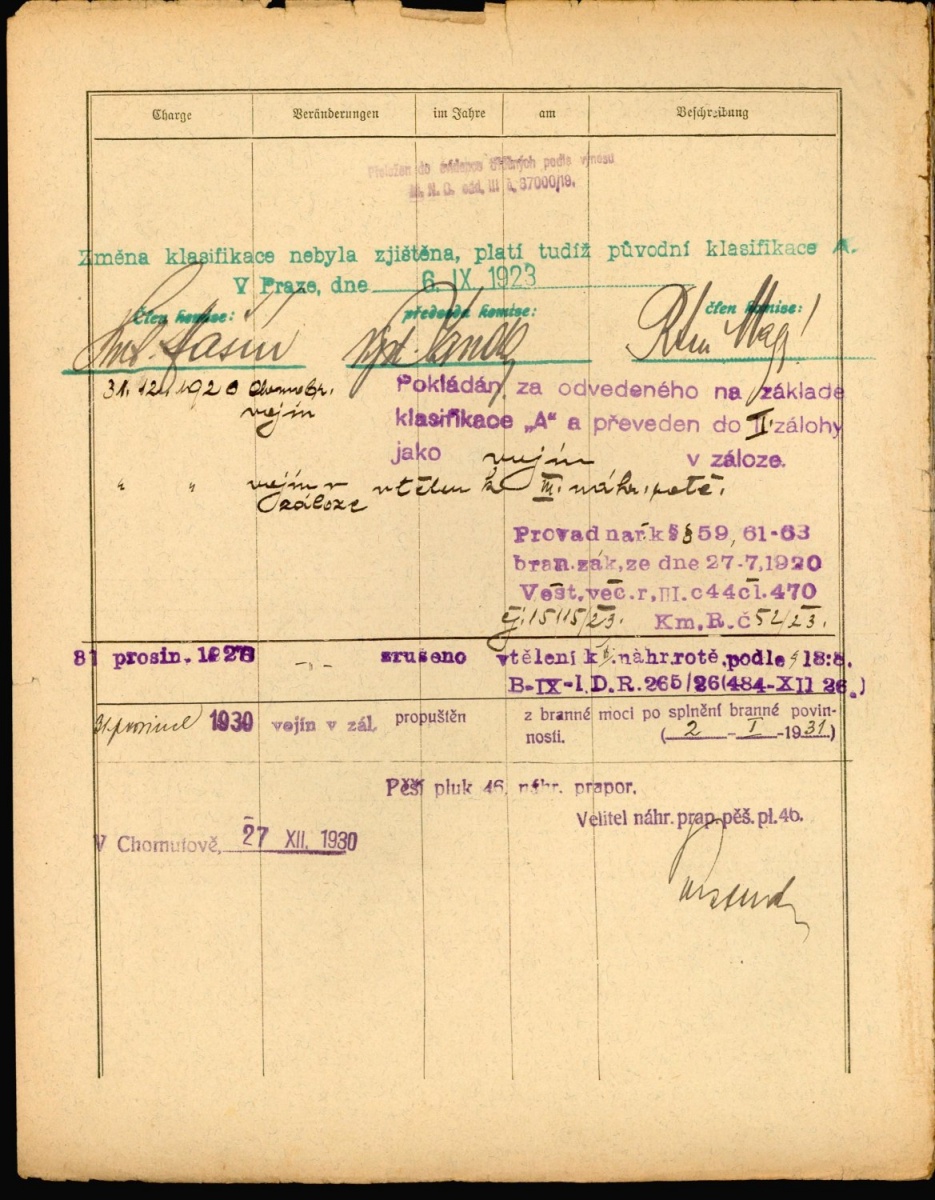 Charge Veränderungen im Jahre am Beschreibung
Přeložen do evidence podle výnosu
M. N. O. odd. III č. 37000/19.
Změna klasifikace nebyla zjištěna, platí tudíž původní klasifikace A.
V Praze, dne 6. IX. 1923
člen komise: předseda komise: člen komise:
31. 12. 1920 Pokládán za odvedeného na základě
vojín klasifikace „A“ a převeden do II zálohy
jako vojín v záloze.
" " vojín v vtělen k III. náhr. rotě.
záloze
Provad nař. k §§ 59, 61-63
bran. zák. ze dne 27-7.1920
Věst. věc. r. III. č 44 čl. 470
čj. 15115/23. Km. R. č 52/23.
31 prosin. 1926 -"- zrušeno vtělení k náhr. rotě. podle § 18:8.
B-IX-1. D. R. 265/26 (484-XII 26.)
31. prosince 1930 vojín v zál. propuštěn z branné moci po splnění branné povin-
nosti. (2 - I -1931)
Pěší pluk 46. náhr. prapor.
Velitel náhr. prap. pěš. pl. 46.
V Chomutově, 27 XII. 1930